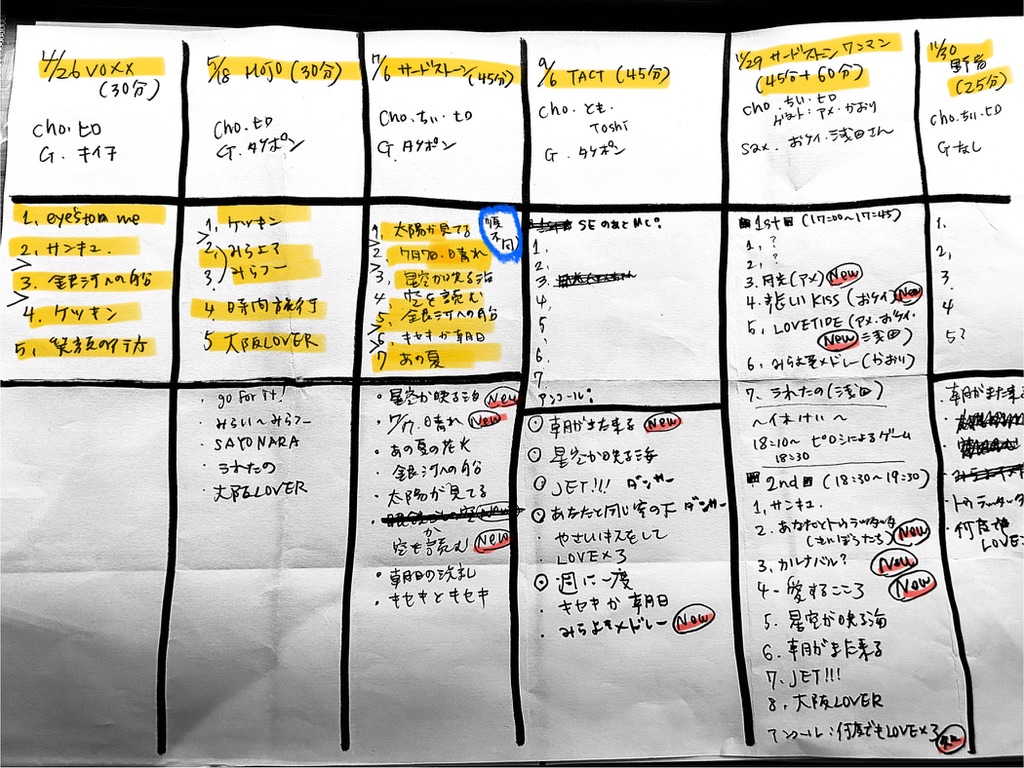 4/26 VOXX
(30分)
Cho. ヒロ
G. キイチ
1. eyes to me
2. サンキュ.
3. 銀河への船
4. ケッキン
5. 笑顔の行方
5/18 MOJO (30分)
Cho. ヒロ
G. タケポン
1. ケッキン
2. みらヱア
3. みらつー
4 時間旅行
5 大阪LOVER
・go for it!
・みらい〜みらつー
・SAYONARA
・うれたの
・大阪LOVER
7/6 サードストーン (45分)
Cho. ちい. ヒロ
G タケポン
順不同
1. 太陽が見てる
2. 7月7日、晴れ
3. 星空が映る海
4 空を読む
5. 銀河への船
6. キセキか朝日
7 あの夏
・星空が映る海 New
・7/7、晴れ New
・あの夏の花火
・銀河への船
・太陽が見てる
か
空を読む New
・朝日の洗礼
・キセキとキセキ
9/6 TACT (45分)
Cho. とも.
Toshi
G. タケポン
SEのあとMC!
1.
2.
3.
4.
5
6.
7.
アンコール:
朝がまた来る New
星空が映る海
JET!!! ダンサー
あなたと同じ空の下 ダンサー
・やさいキスをして
・LOVE×3
週に一度
・キセキか朝日
・みらよきメドレー New
11/29 サードストーン ワンマン
(45分+60分)
Cho. ちい. ヒロ
ゲスト:アメ・かおり
Sax. おケイ・浅田さん
1st (17:00〜17:45)
1. ?
2. ?
3. 月光(アメ) New
4. 悲しいKISS (おケイ) New
5. LOVETIDE (アメ.おケイ.
New 浅田)
6. みらよきメドレー(かおり)
7. うれたの(浅田)
〜休けい〜
18:10〜 ヒロによるゲーム
18:30
2nd (18:30〜19:30)
1. サンキュ.
2. あなたとトゥラッタッタ
New
3. カルナバル? New
4. 愛するこころ New
5. 星空が映る海
6. 朝がまた来る
7. JET!!!
8. 大阪LOVER
アンコール:何度でもLOVE×3
11/30
野音
(25分)
Cho. ちい. ヒロ
G なし
1.
2.
3.
4
5?
朝がまた来る
・トゥラッタッタ
・何度でも
LOVE